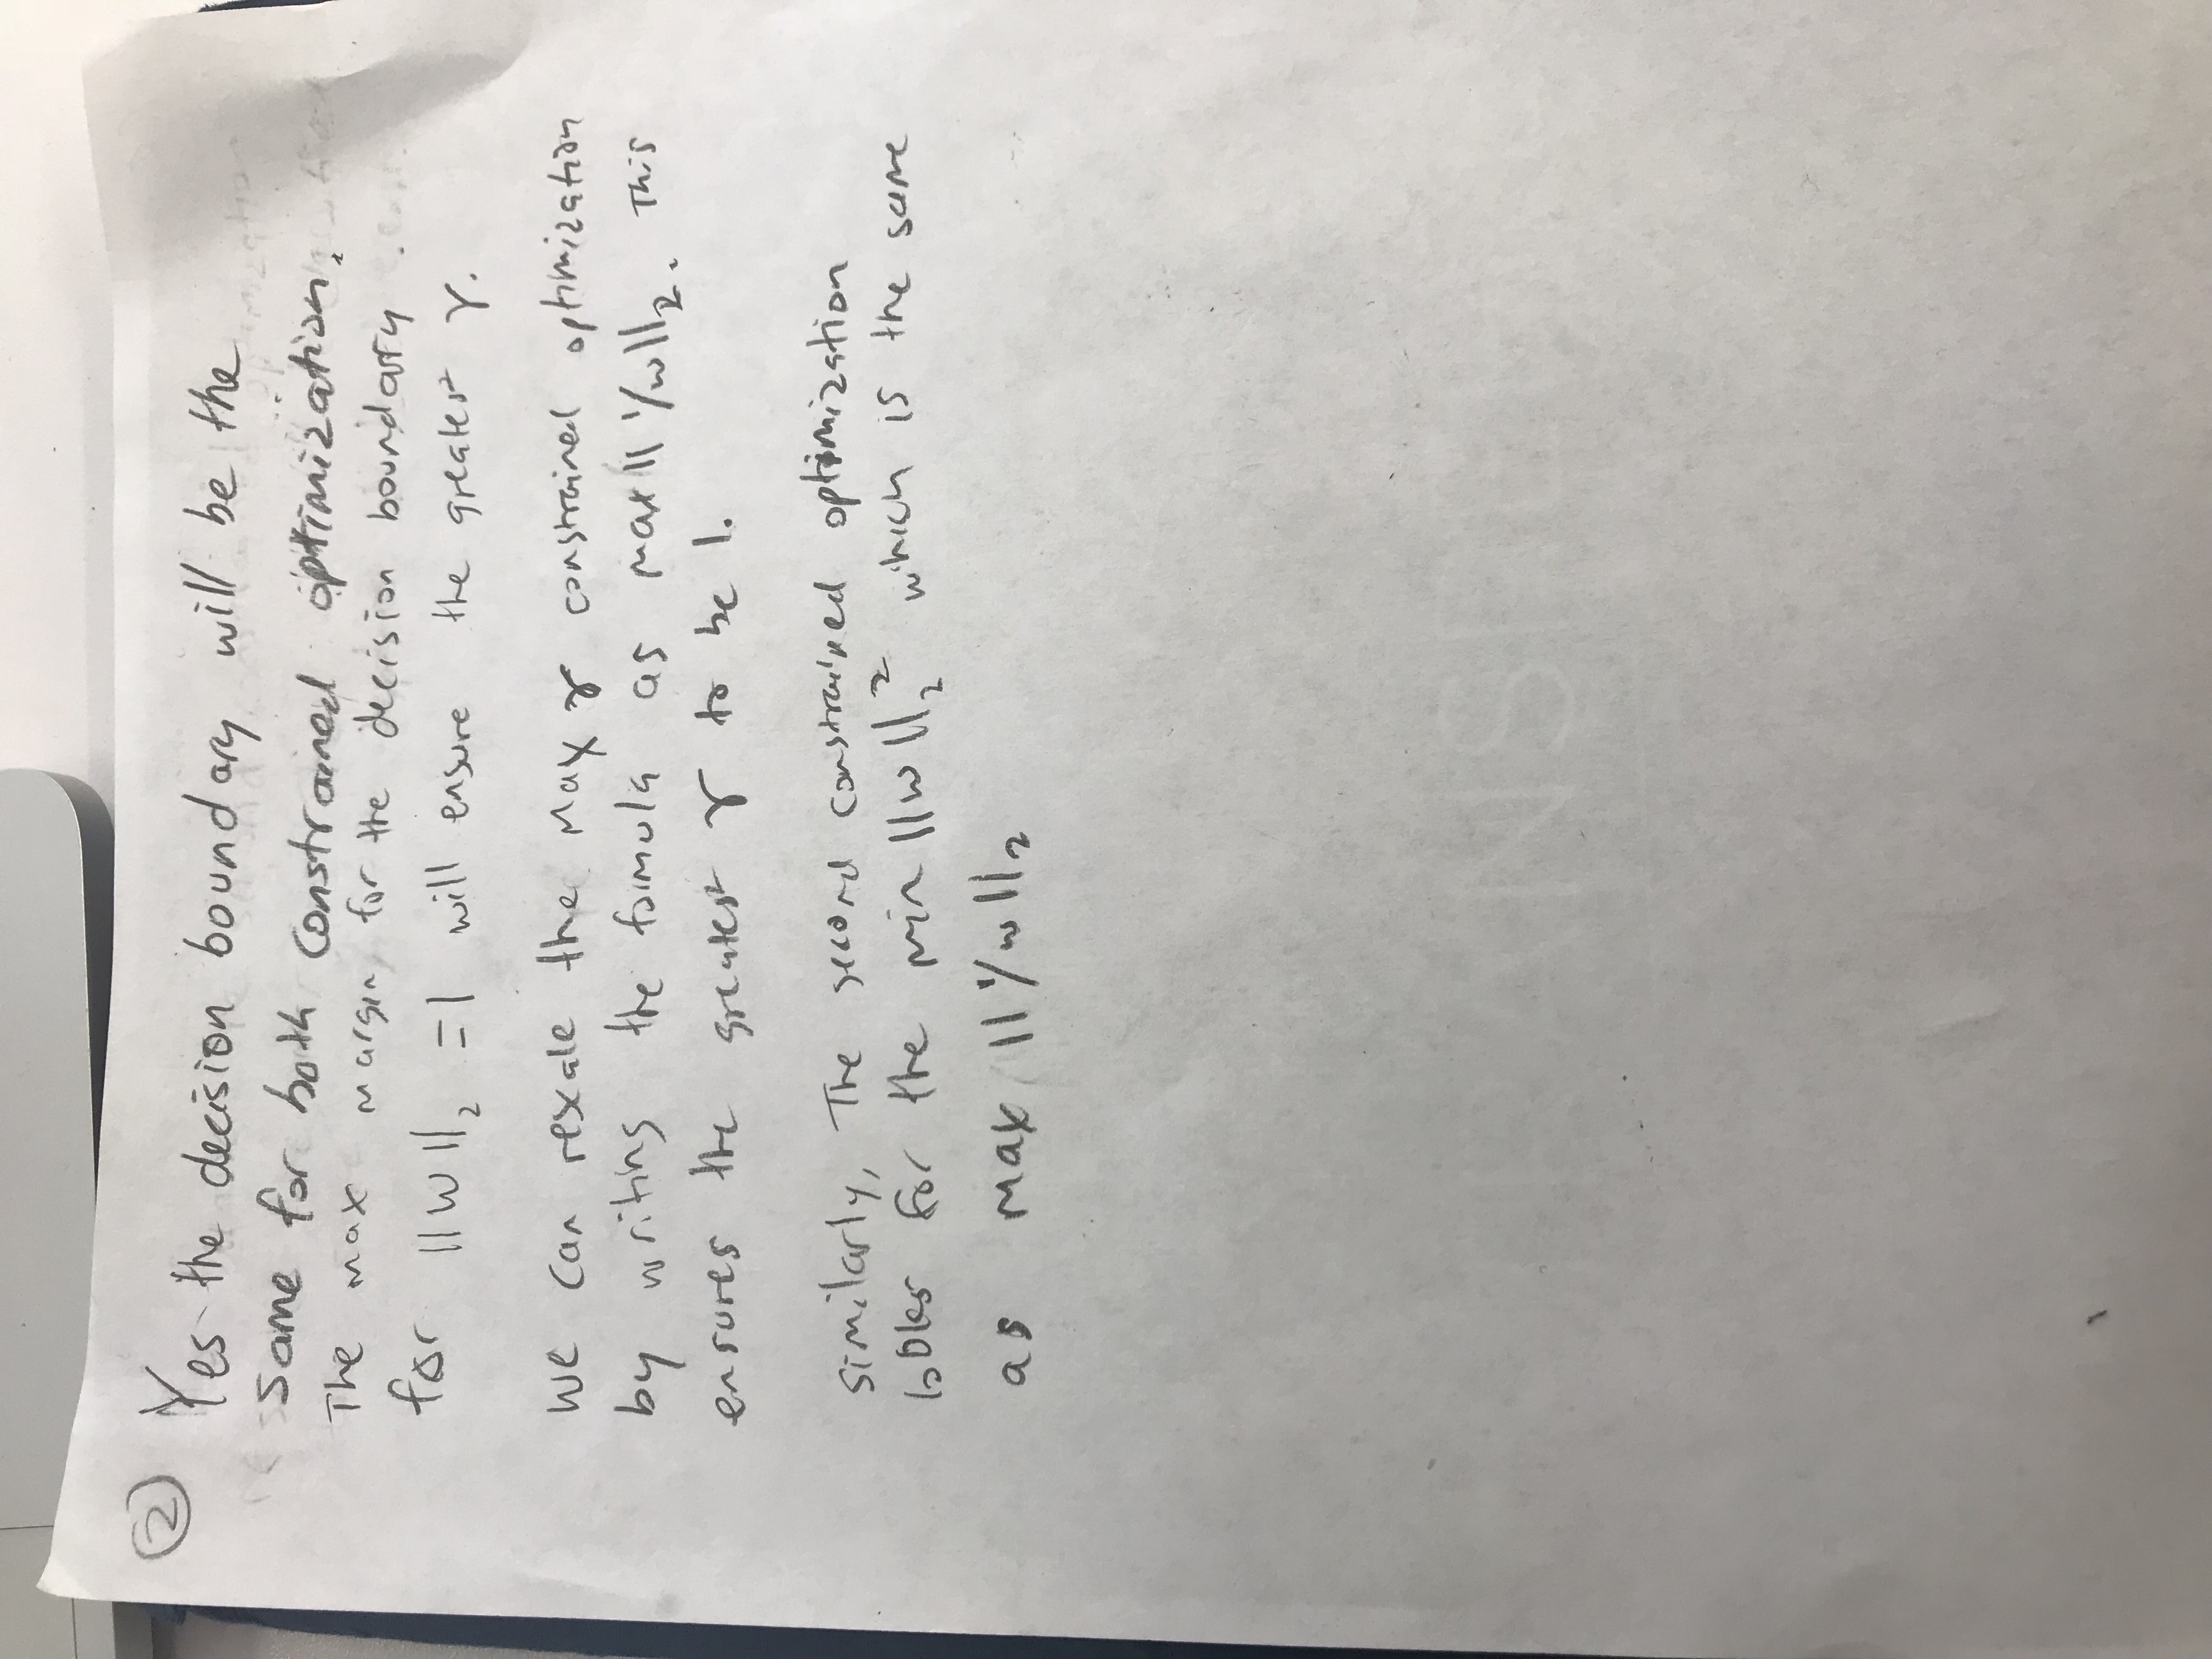 ②
Yes the decision boundary will be the
same for both constrained optimization.
The max margin for the decision boundary
for ||w||₂ = 1 will ensure the greatest γ.
we can rescale the max γ constrained optimization
by writing the formula as max || 1/w||₂. This
ensures the greatest γ to be 1.
similarly, The second constrained optimization
looks for the min ||w||₂² which is the same
as max || 1/w||₂